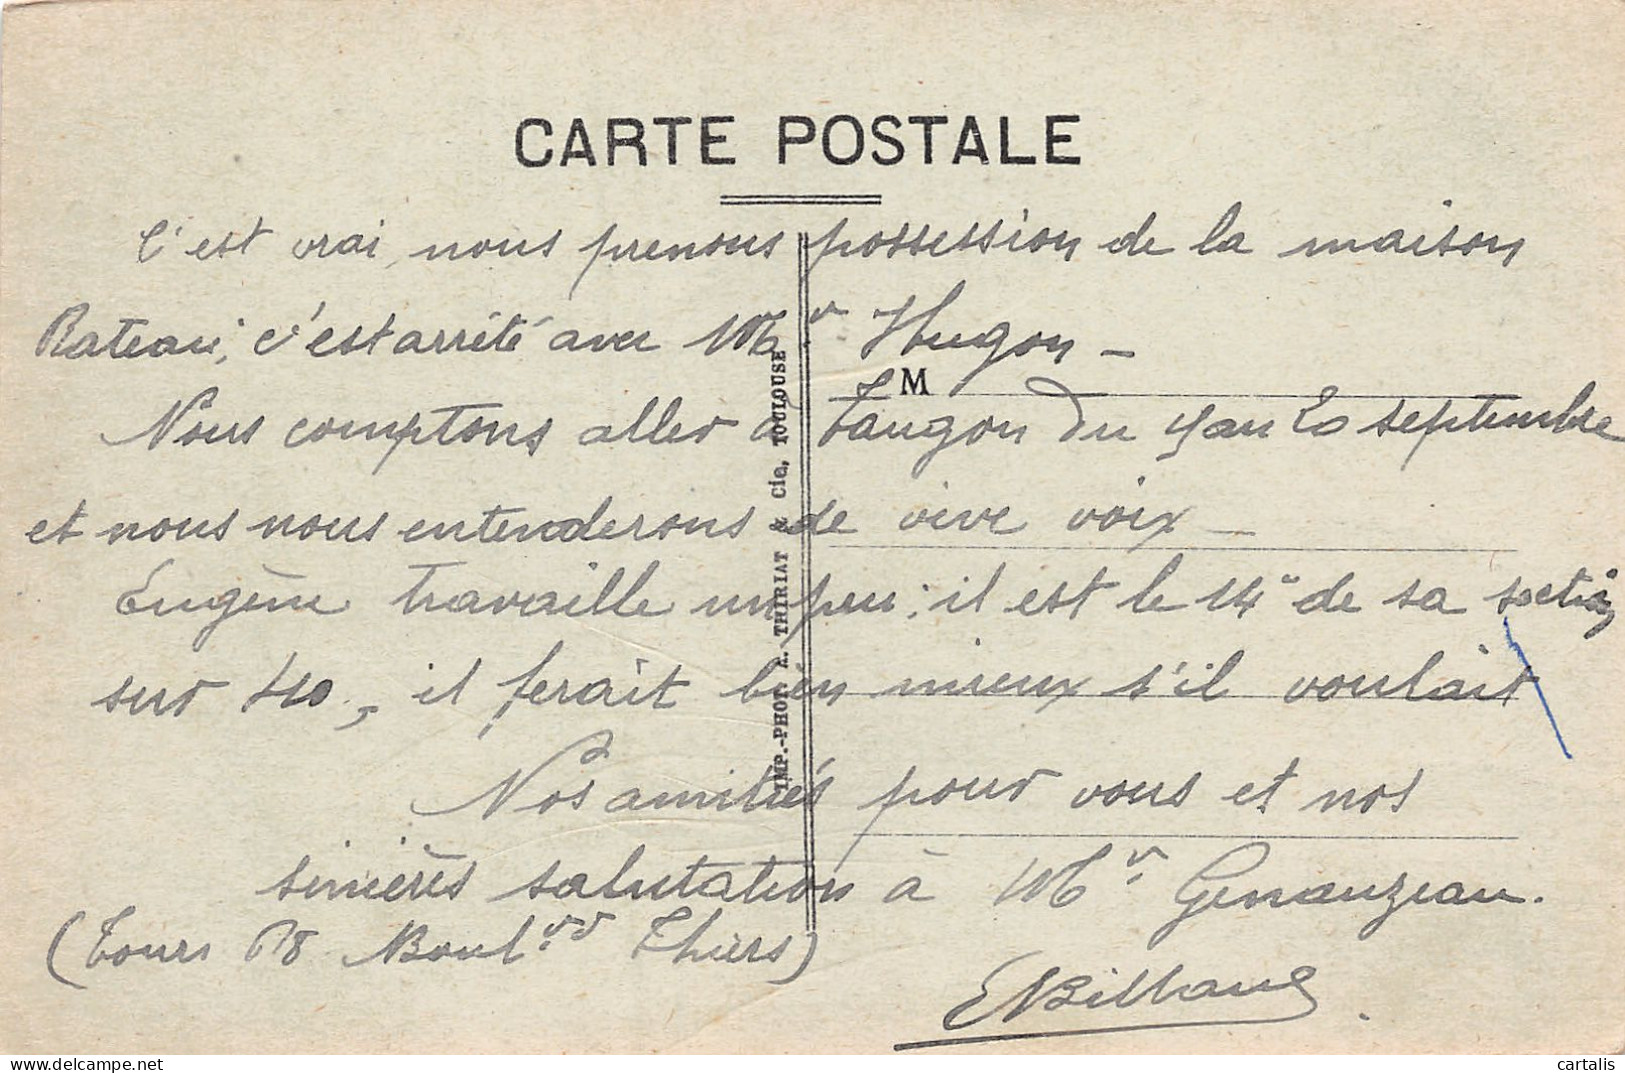 CARTE POSTALE
C'est vrai, nous prenons possession de la maison
Rateau, c'est arrêté avec Mr Hugon –
M
Nous comptons aller à Taugon du 5 au 20 septembre
et nous nous entenderons de vive voix –
Eugène travaille un peu, il est le 14e de sa section
sur 40, il ferait bien mieux s'il voulait
Nos amitiés pour vous et nos
sincères salutation à Mr Genauzeau.
(Tours 68 Boulvrd Thiers)
EBillaud
IMP.-PHOT. A. THIRIAT & Cie, TOULOUSE
cartalis